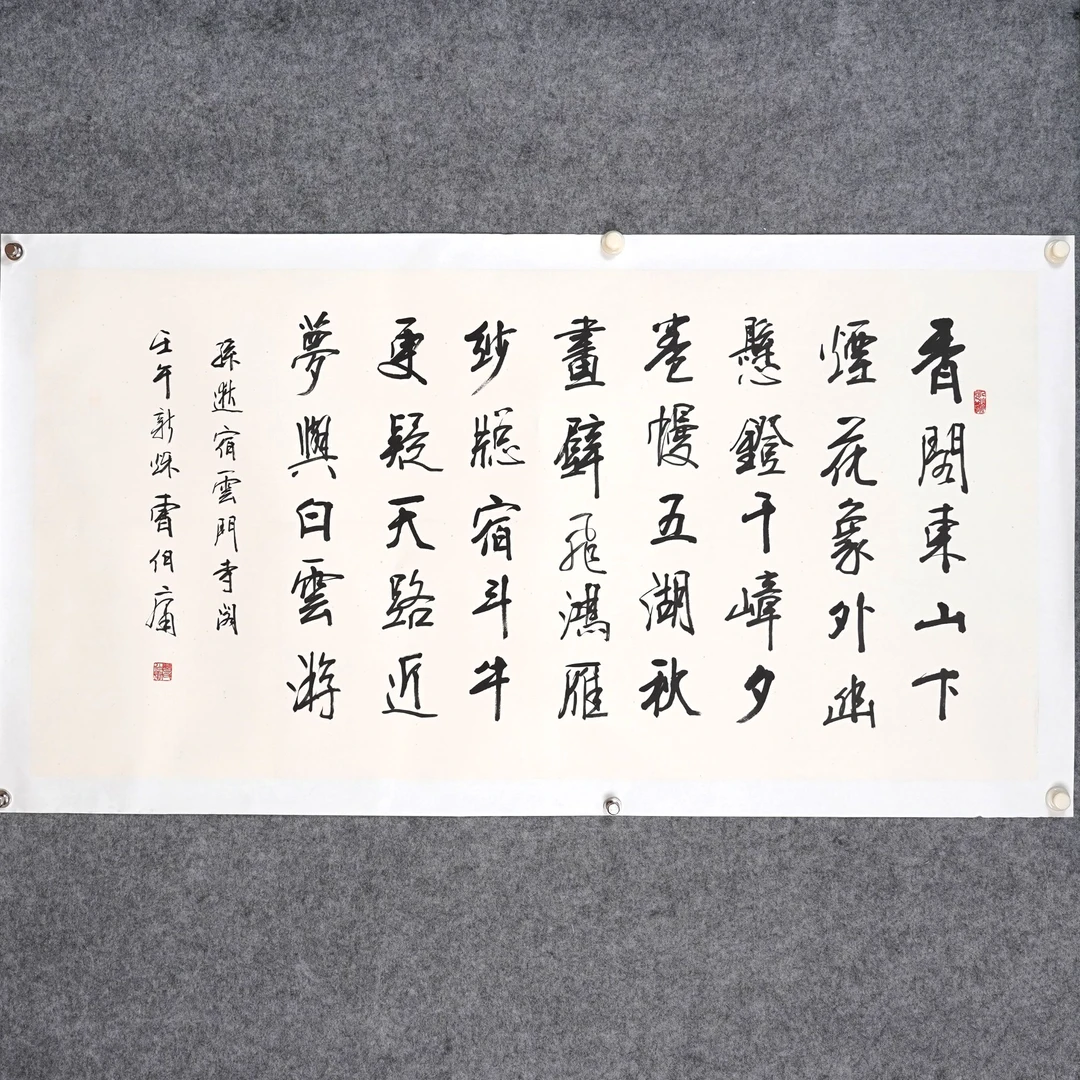 香閣東山下
煙花象外幽
懸鐙千嶂夕
卷幔五湖秋
畫壁飛鴻雁
紗牕宿斗牛
更疑天路近
夢與白雲游
孫逖宿雲門寺閣
壬午新秌曹伯庸